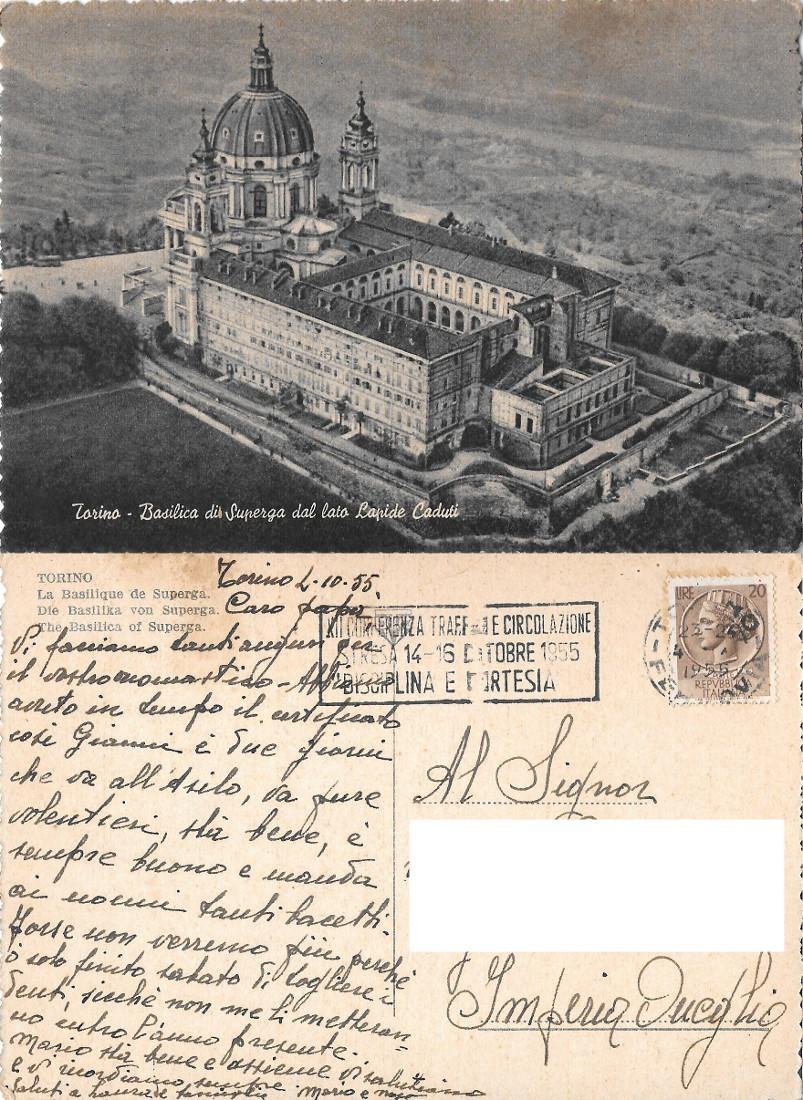 Torino - Basilica di Superga dal lato Lapide Caduti
TORINO
La Basilique de Superga.
Die Basilika von Superga.
The Basilica of Superga.
Torino 2-10-55
Caro papà
Vi facciamo tanti auguri per
il vostro onomastico - Abbiamo
avuto in tempo il certificato
così Gianni è due giorni
che va all'Asilo, va pure
volentieri, stà bene, è
sempre buono e manda
ai nonni tanti bacetti.
Forse non verremo più perchè
ò solo finito sabato di togliere i
denti, sicchè non me li metteran=
no entro l'anno presente.
Mario stà bene e assieme vi salutiamo
e vi ricordiamo sempre
Saluti a Laura e famiglia Mario e
XII CONFERENZA TRAFF E CIRCOLAZIONE
STRESA 14-16 OTTOBRE 1955
DISCIPLINA E CORTESIA
LIRE 20
REPVBBLICA
ITALIANA
1955
Al Signor
Imperia Oneglia